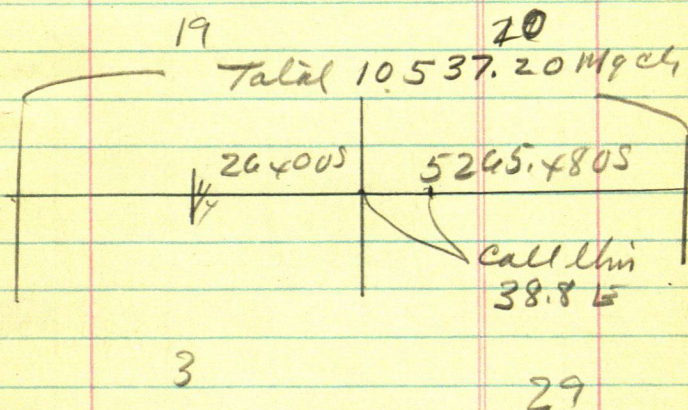 19 20
Total 10537.20 Mg ch
2640 US 5265.480S
1/4
Call this
38.8 E
3 29